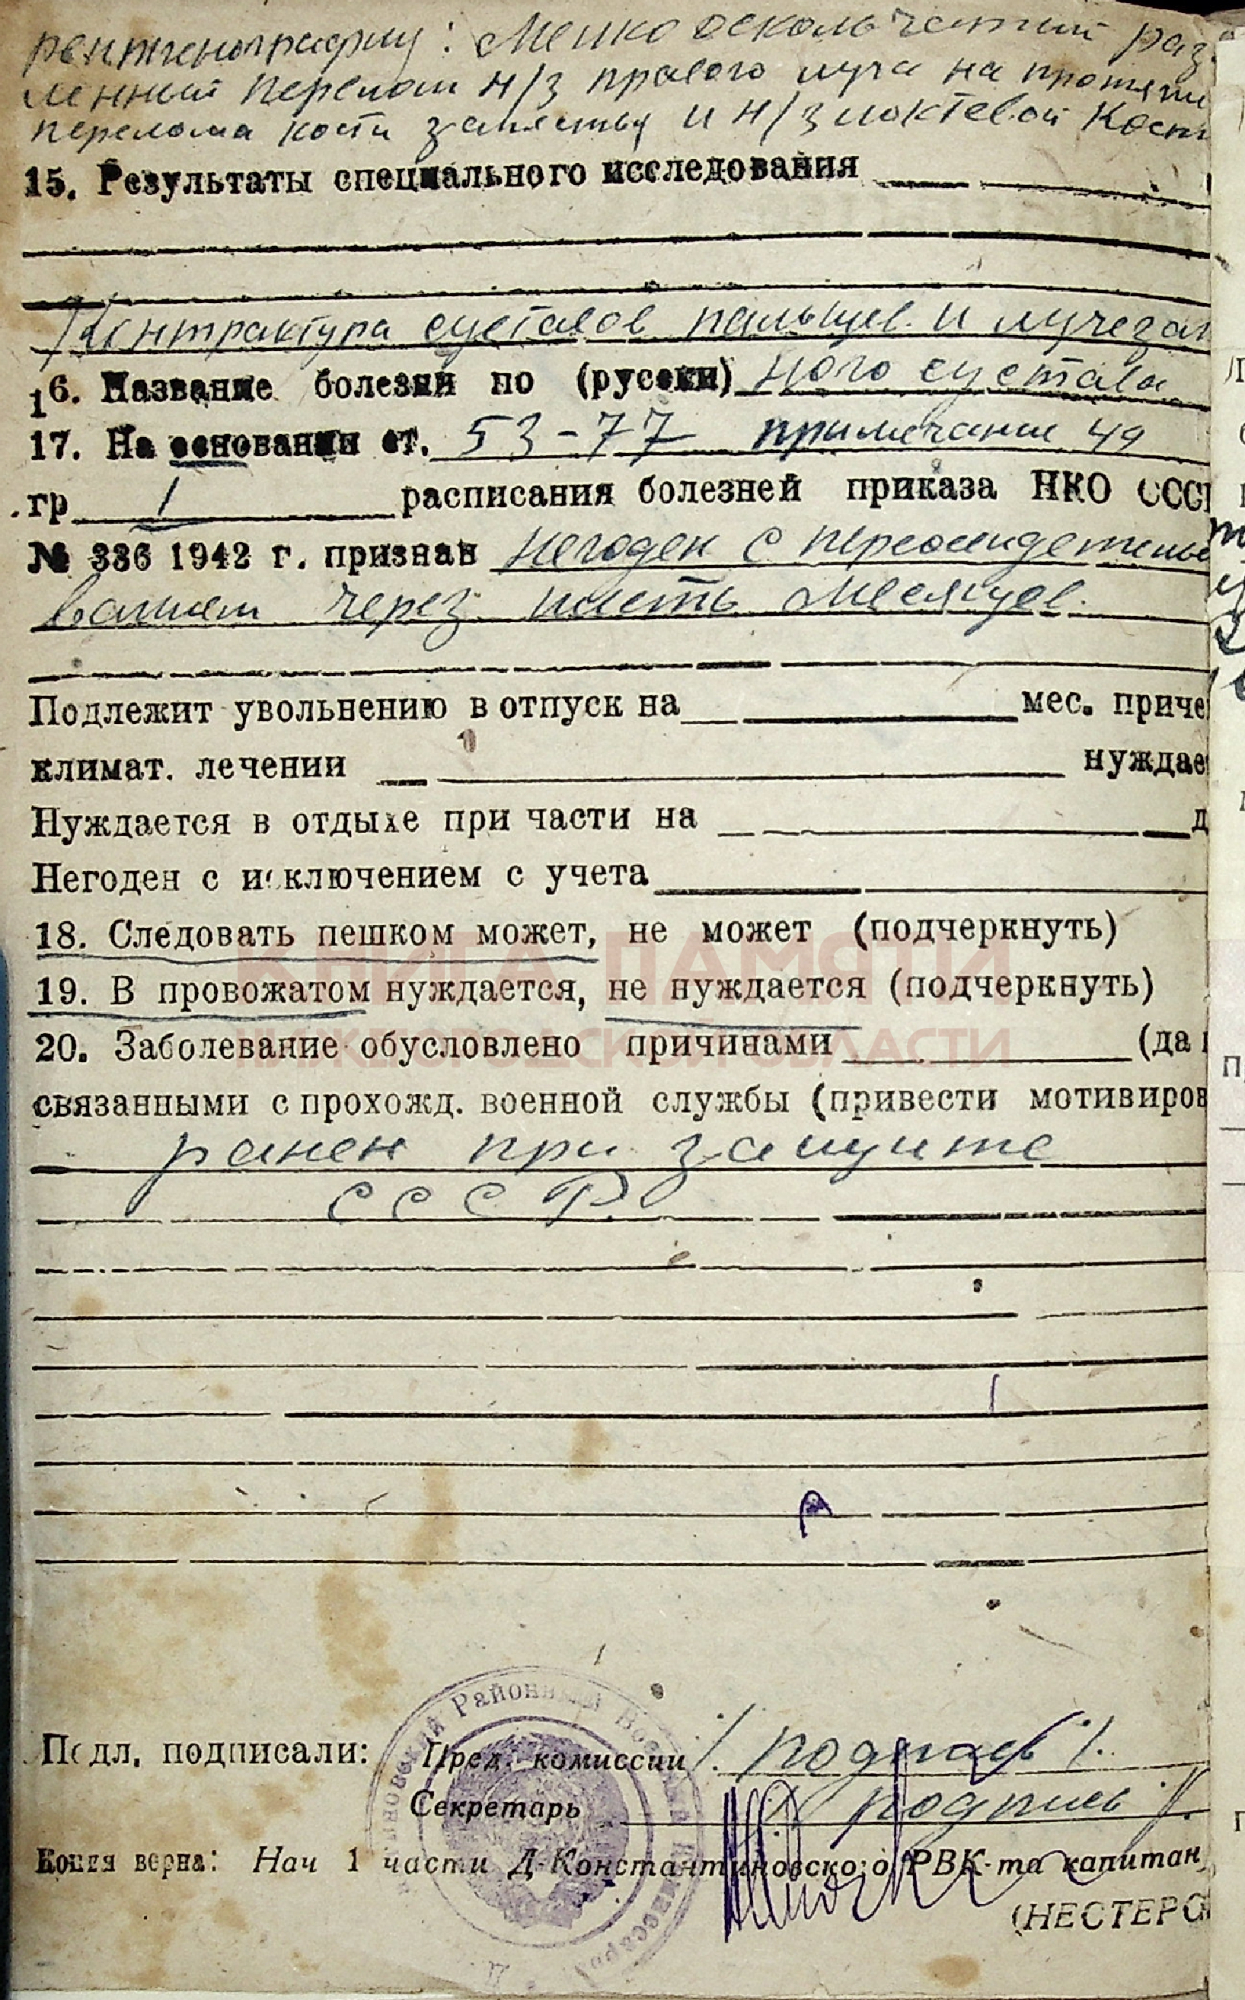 рентгенографии: Мелко оскольчатый раз
ленный перелом н/з правого луча на протяже
перелома кости запястья и н/з локтевой кост
15. Результаты специального исследования
Контрактура суставов пальцев и лучезап
16. Название болезни по (русски) ного сустава
17. На основании ст. 53-77 примечание 49
гр 1 расписания болезней приказа НКО СССР
№ 336 1942 г. признан негоден с переосвидетельство
ванием через шесть месяцев.
Подлежит увольнению в отпуск на мес. приче
климат. лечении нуждае
Нуждается в отдыхе при части на д
Негоден с исключением с учета
18. Следовать пешком может, не может (подчеркнуть)
19. В провожатом нуждается, не нуждается (подчеркнуть)
КНИГА ПАМЯТИ
НИЖЕГОРОДСКОЙ ОБЛАСТИ
20. Заболевание обусловлено причинами (да
связанными с прохожд. военной службы (привести мотивиров
ранен при защите
СССР.
Подл. подписали: Пред. комиссии /. подпись /.
Секретарь / подпись /.
Копия верна: Нач 1 части Д-Константиновского РВК-та капитан
(НЕСТЕРО
Районный Военный Комиссариат